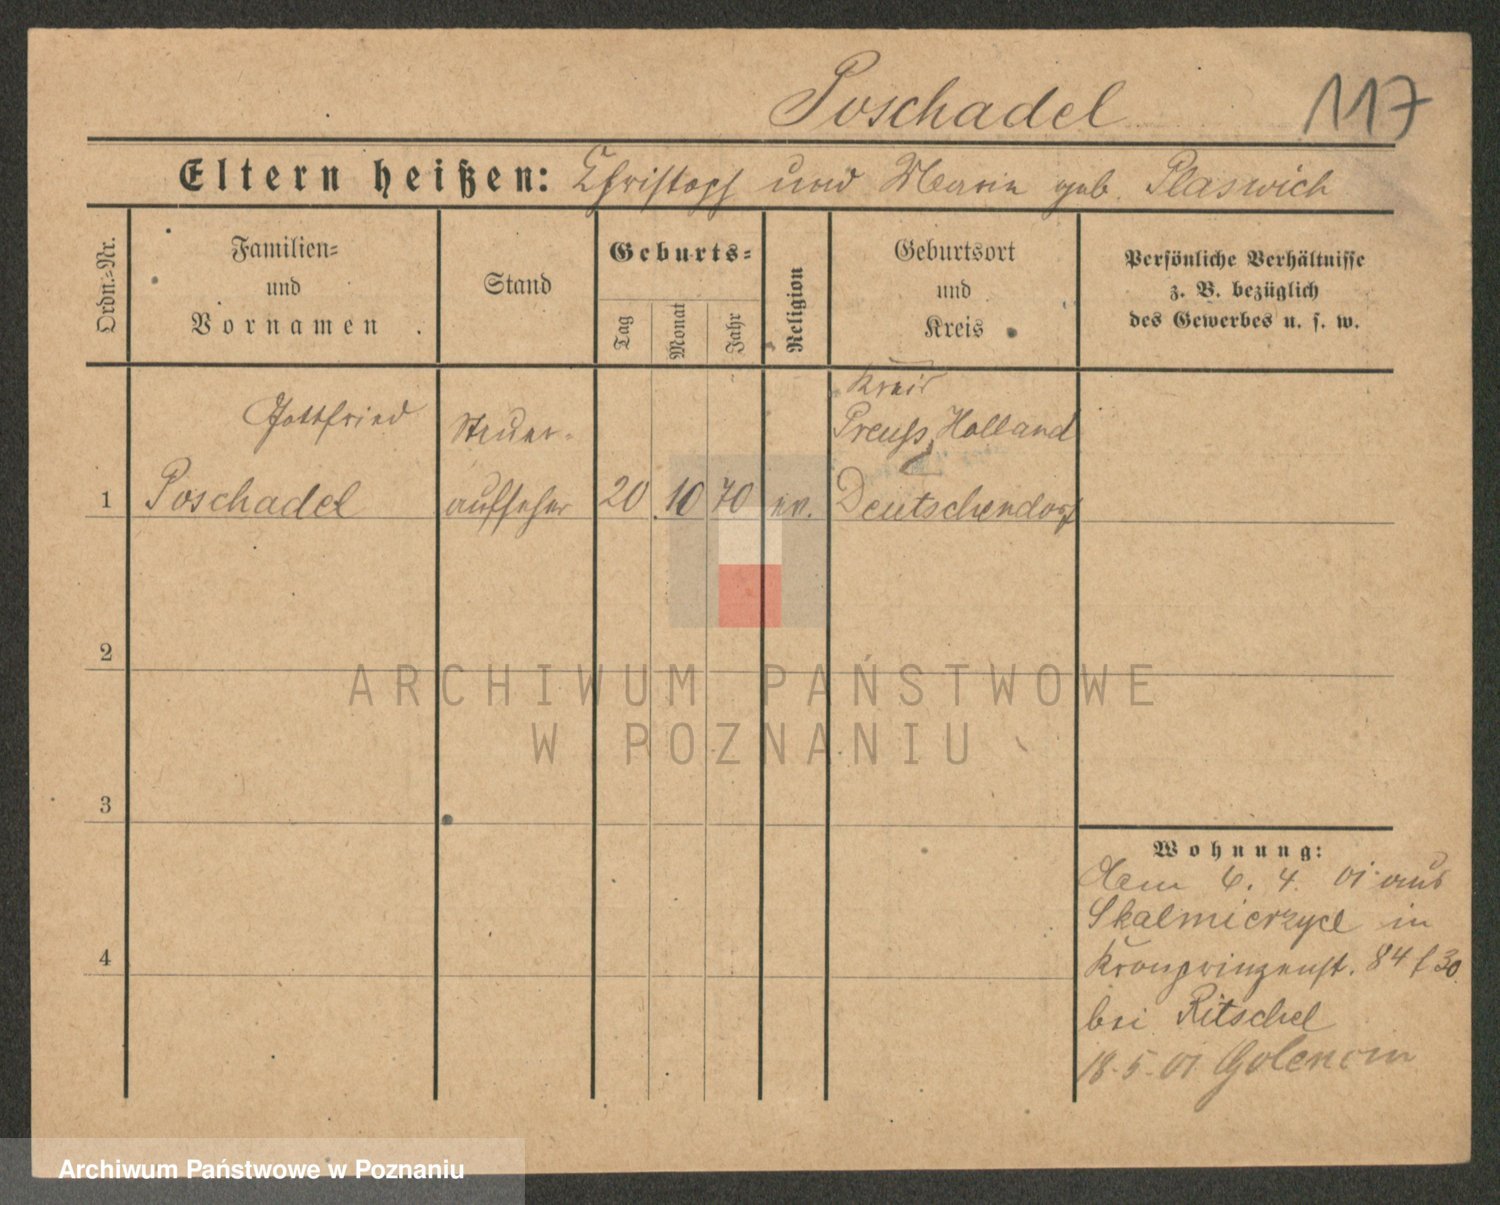 Poschadel 117
Eltern heißen: Christoph und Maria geb. Plaswich
Ordn.-Nr.
Familien-
und
Vornamen
Stand
Geburts-
Tag
Monat
Jahr
Religion
Geburtsort
und
Kreis
Persönliche Verhältnisse
z. B. bezüglich
des Gewerbes u. s. w.
Kreis
Gottfried Steuer- Preuss Holland
1 Poschadel aufseher 20 10 70 ev. Deutschendorf
2
3
4
Wohnung:
6. 4. 01 aus
Skalmierzyce in
Kronprinzenst. 84 f 30
bei Ritschel
18.5.01
ARCHIWUM PAŃSTWOWE
W POZNANIU
Archiwum Państwowe w Poznaniu